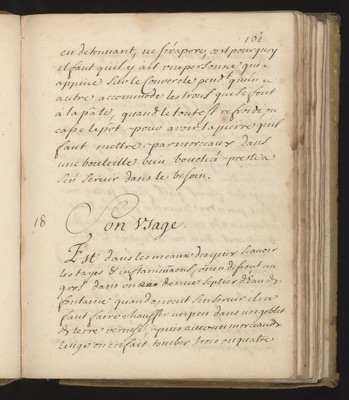 161
en detonnant, ne s'évapore, c'est pourquoy
il faut qu'il y ait une personne qui
appuie sur le couvercle pend.t qu'un
autre accommode les trous qui se font
à la pate, quand le tout est refroidi on
casse le pot pour avoir la pierre qu'il
faut mettre par morceaux dans
une bouteille bien bouchée preste a
s'en servir dans le besoin.
18 Son Usage.
Est dans les maux des yeux sçavoir
les tayes & inflammaons, on en dissout un
gros dans un demie septier d'Eau de
fontaine quand on veut s'en servir il en
faut faire chauffer un peu dans un gobelet
de terre vernissé, puis avec un morceau de
linge on en fait tomber trois ou quatre